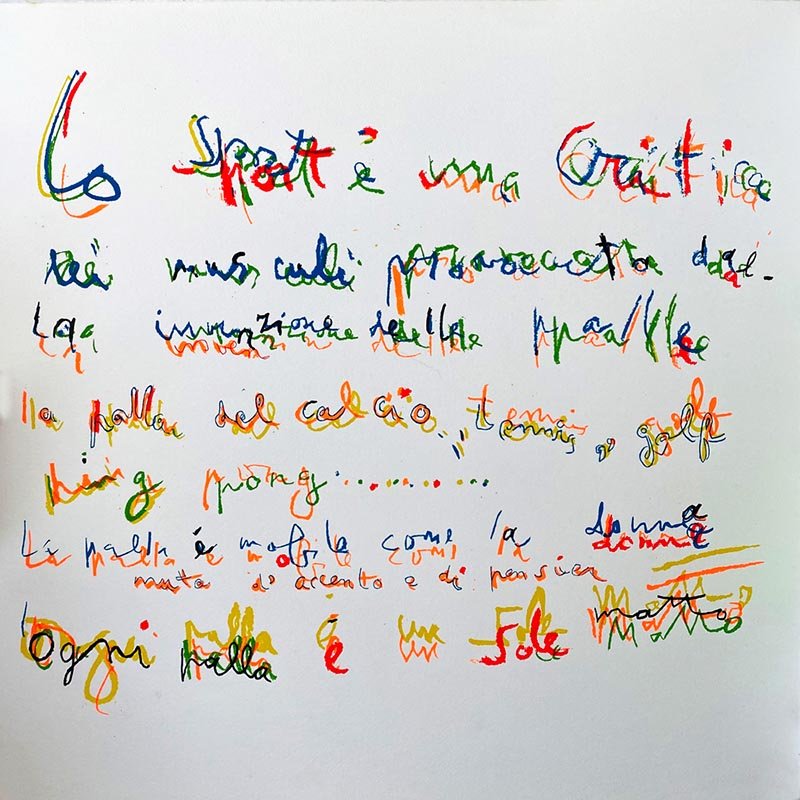 Lo Sport è una Critica
dei muscoli provocata
La invenzione delle palle
la palla del calcio, tennis, golf
ping pong ..........
La palla è mobile come la donna
muta d'accento e di pensier
Ogni palla è un Sole matto